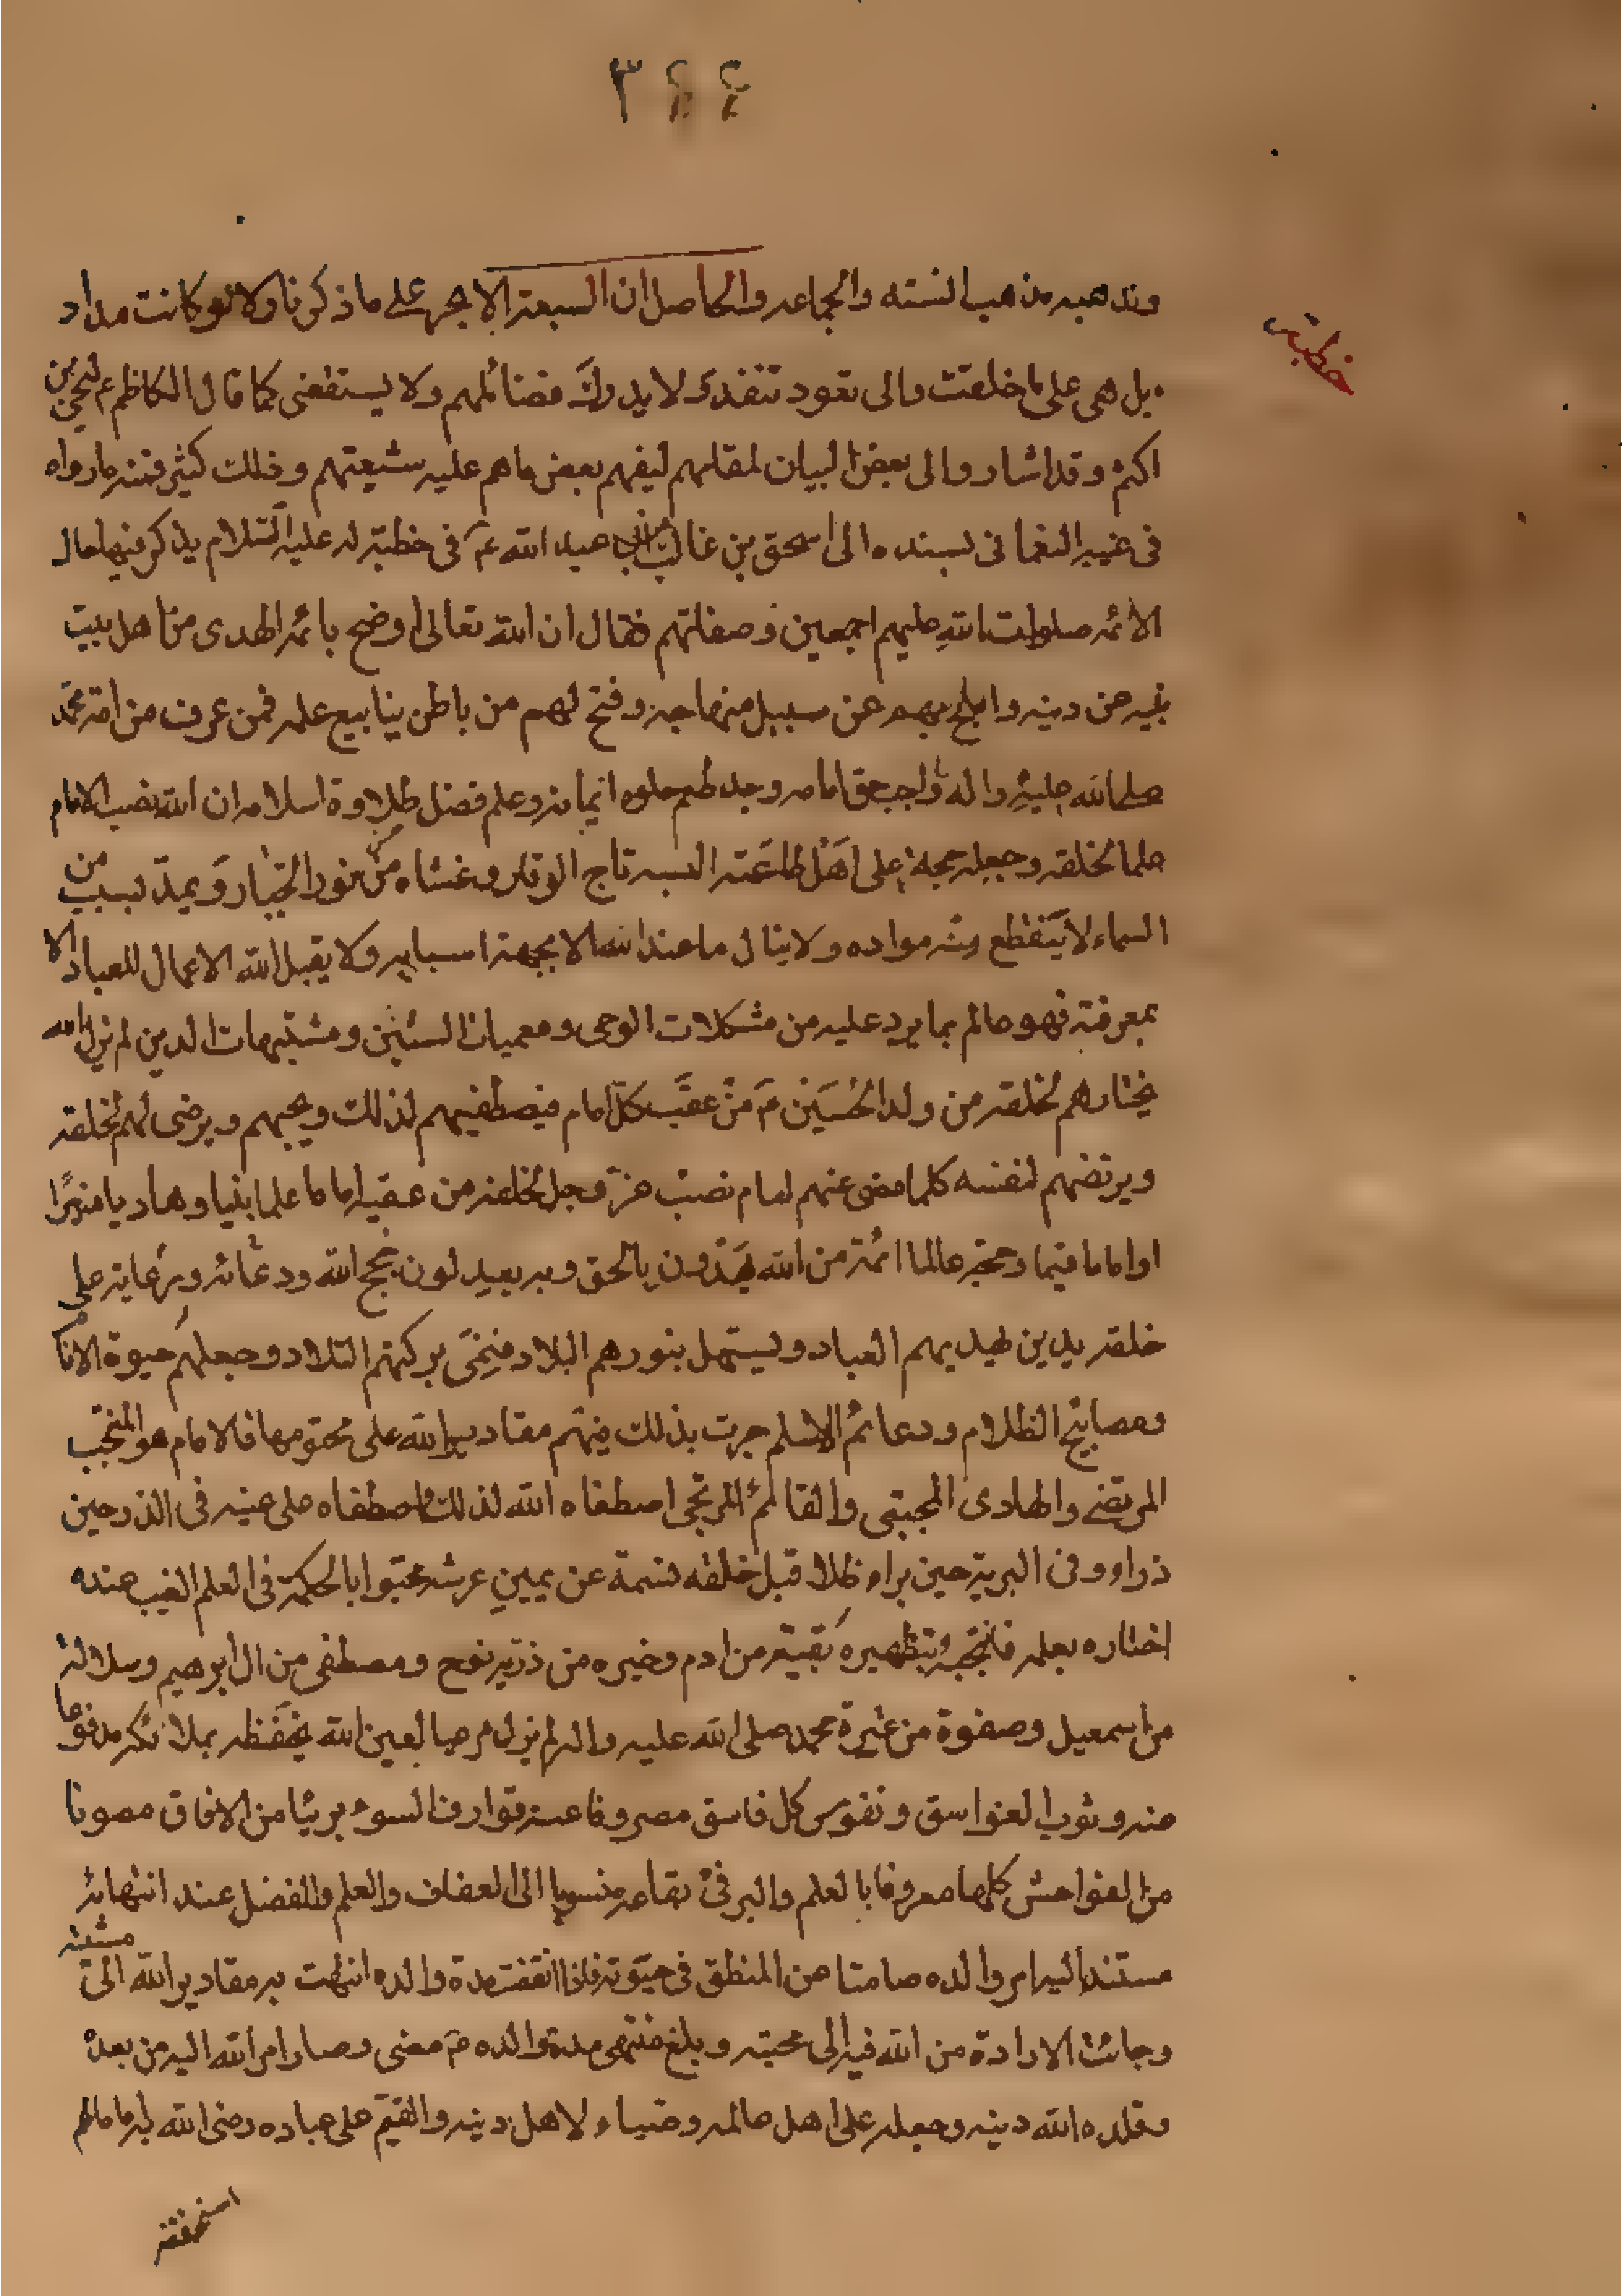 ٣٤٤
ومذهبه مذهب السنة والجماعه والحاصل ان السبعة الابحر على ما ذكرنا ولا لو كانت مداد
خطبته
بل هي على ما خلقت والى تعود تنفد ولا يدرك فضائلهم ولا يستقصى كما قال الكاظم ع ليحيى بن
اكثم وقد اشاروا الى بعض البيان لمقلهم ليفهم بعض ما هم عليه شيعتهم وذلك كثير فمنه ما رواه
فى غيبة النعمانى بسنده الى اسحق بن غالب عن ابى عبد الله ع فى خطبة له عليه السلام يذكر فيها حال
الائمه صلوات الله عليهم اجمعين وصفاتهم فقال ان الله تعالى اوضح بائمه الهدى من اهل بيت
نبيه عن دينه وابلج بهم عن سبيل منهاجه وفتح لهم من باطن ينابيع علمه فمن عرف من امة محمد
صلى الله عليه واله واجب حق امامه وجد طعم حلوه ايمانه وعلم فضل طلاوة اسلامه ان الله نصب الامام
علما لخلقه وجعله حجة على اهل طاعته البسه تاج الوقار وغشاه من نور الجبار ويمد بسبب من
السماء لا ينقطع عنه مواده ولا ينال ما عند الله الا بجهة اسبابه ولا يقبل الله الاعمال للعباد الا
بمعرفته فهو عالم بما يرد عليه من مشكلات الوحى ومعميات السنن ومشتبهات الدين لم يزل الله
يختارهم لخلقه من ولد الحسين ع من عقب كل امام فيصطفيهم لذلك ويجبهم ويرضى لهم لخلقه
ويرتضهم لنفسه كلما مضى عنهم امام نصب عز وجل لخلقه من عقبه اماما علما بينا وهاديا منيرا
او اماما قيما وحجة عالما ائمة من الله يهدون بالحق وبه يعدلون حجج الله ودعائه ورعاته على
خلقه يدين لهديهم العباد ويستهل بنورهم البلاد فينمى ببركتهم التلاد وجعلهم حيوة الانام
ومصابيح الظلام ودعائم الاسلم جرت بذلك فيهم مقادير الله على محتومها فالامام هو المنتجب
المرتضى والهادى المجتبى والقائم المرتجى اصطفاه الله لذلك واصطفاه على عينه فى الذر حين
ذراه وفى البرية حين براه ظلا قبل خلقه نسمة عن يمين عرشه محبوا بالحكمة فى العلم الغيب عنده
اختاره بعلمه فانتجبه وبتطهيره بقية من ادم وخيره من ذرية نوح ومصطفى من ال ابرهيم وسلالة
من اسمعيل وصفوة من عترة محمد صلى الله عليه واله لم يزل مرعيا بعين الله يحفظه بملائكة مدفوعا
عنه وثوب الغواسق ونفوس كل فاسق مصروفا عنه قوارف السوء بريئا من الافاق مصونا
من الفواحش كلها معروفا بالعلم والبر فى بقاعه منسوبا الى العفاف والعلم والفضل عند انتهائه
مستندا اليه امر والده صامتا عن المنطق فى حيوته فاذا انقضت مدة والده انتهت به مقادير الله الى مشيته
وجائت الارادة من الله فيه الى محبته وبلغ منتهى مدة والده ع مضى وصار امر الله اليه من بعده
وقلده الله دينه وجعله على اهل عالمه وضياء لاهل دينه والقيم على عباده رضى الله به اماما لهم
استحفظه